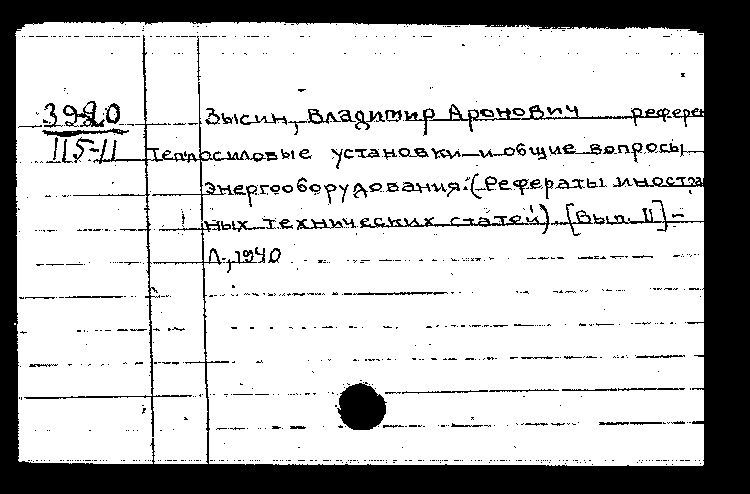 39-20
115-11
Зысин, Владимир Аронович референ
Теплосиловые установки и общие вопросы
энергооборудования. (Рефераты иностран
ных технических статей). [Вып. II] -
Л., 1940